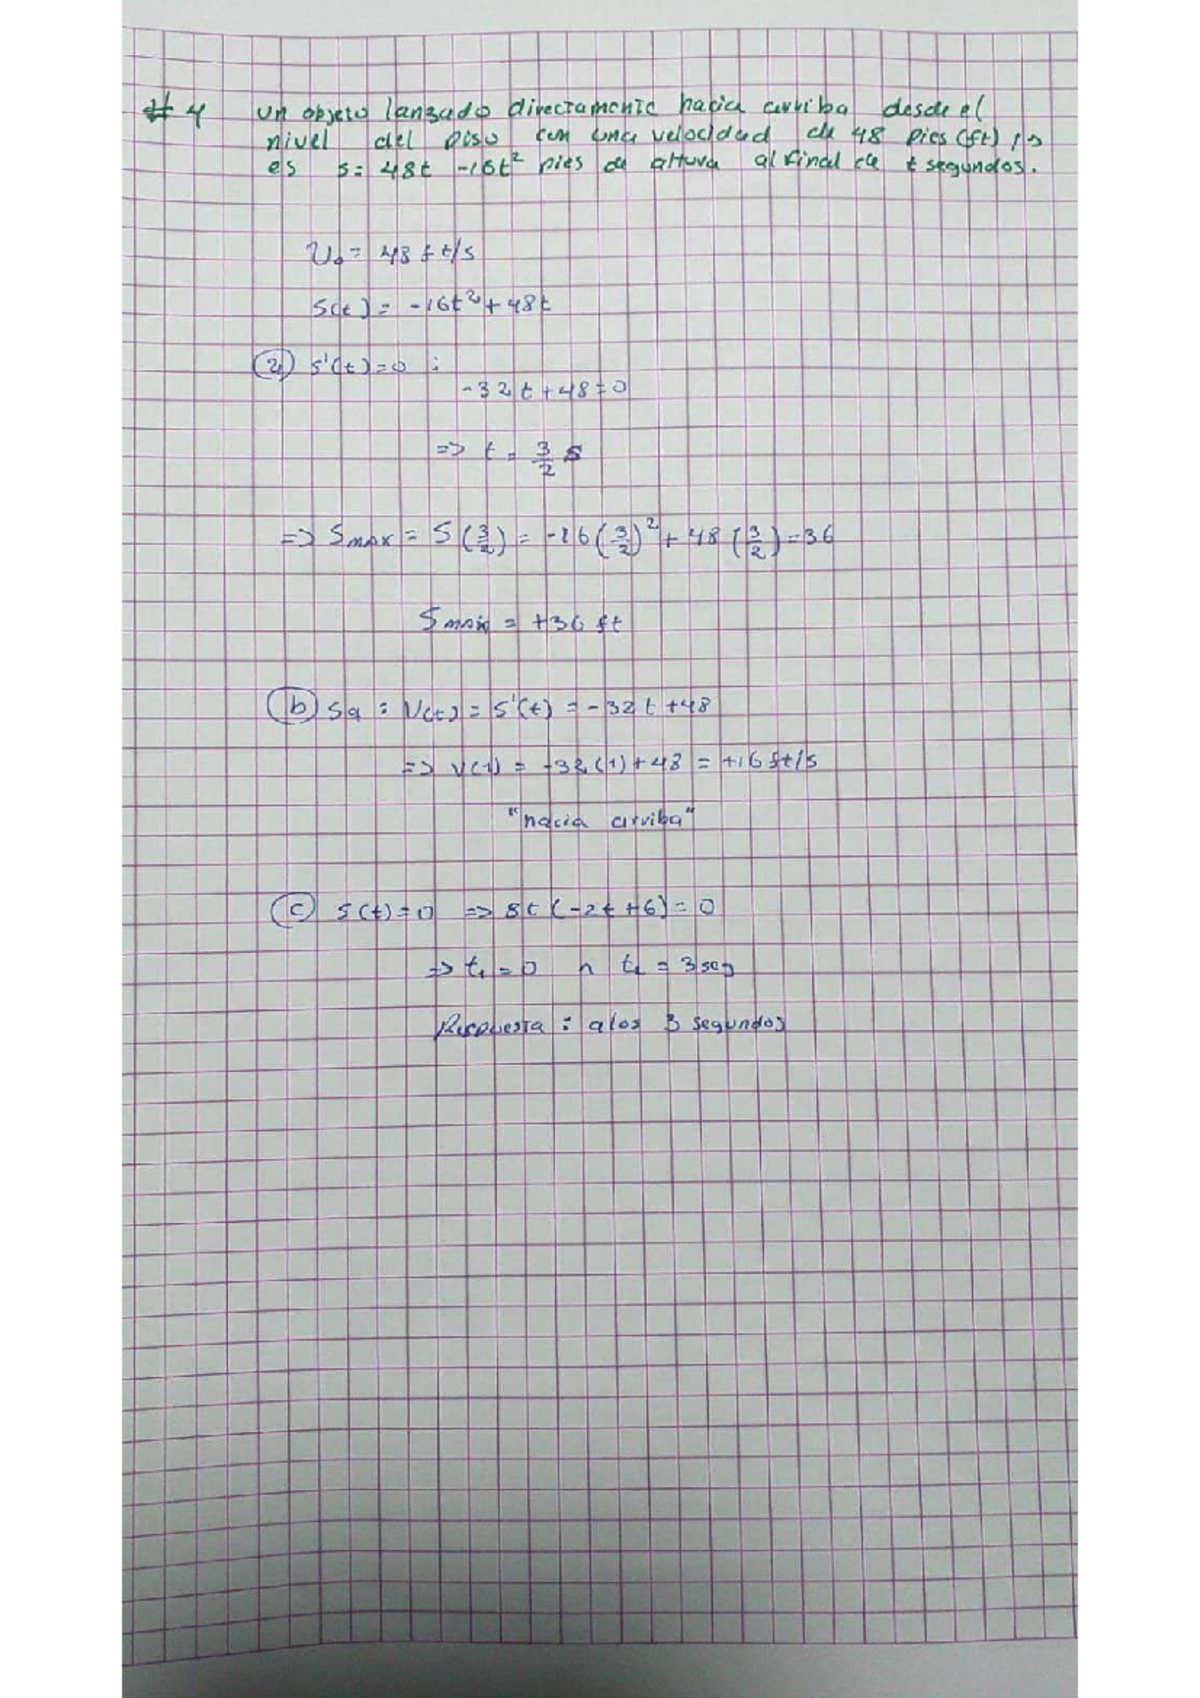 # 4 Un objeto lanzado directamente hacia arriba desde el
nivel del piso con una velocidad de 48 pies (ft) / s
es s = 48t - 16t² pies de altura al final de t segundos.
V₀ = 48 ft/s
S(t) = -16t² + 48t
a) S'(t) = 0 :
-32t + 48 = 0
=> t = 3/2 s
=> Smax = S(3/2) = -16(3/2)² + 48(3/2) = 36
Smax = +36 ft
b) Sa : V(t) = S'(t) = -32t + 48
=> V(1) = -32(1) + 48 = +16 ft/s
"hacia arriba"
c) S(t) = 0 => 8t(-2t + 6) = 0
=> t₁ = 0 ∧ t₂ = 3 seg
Respuesta : a los 3 segundos